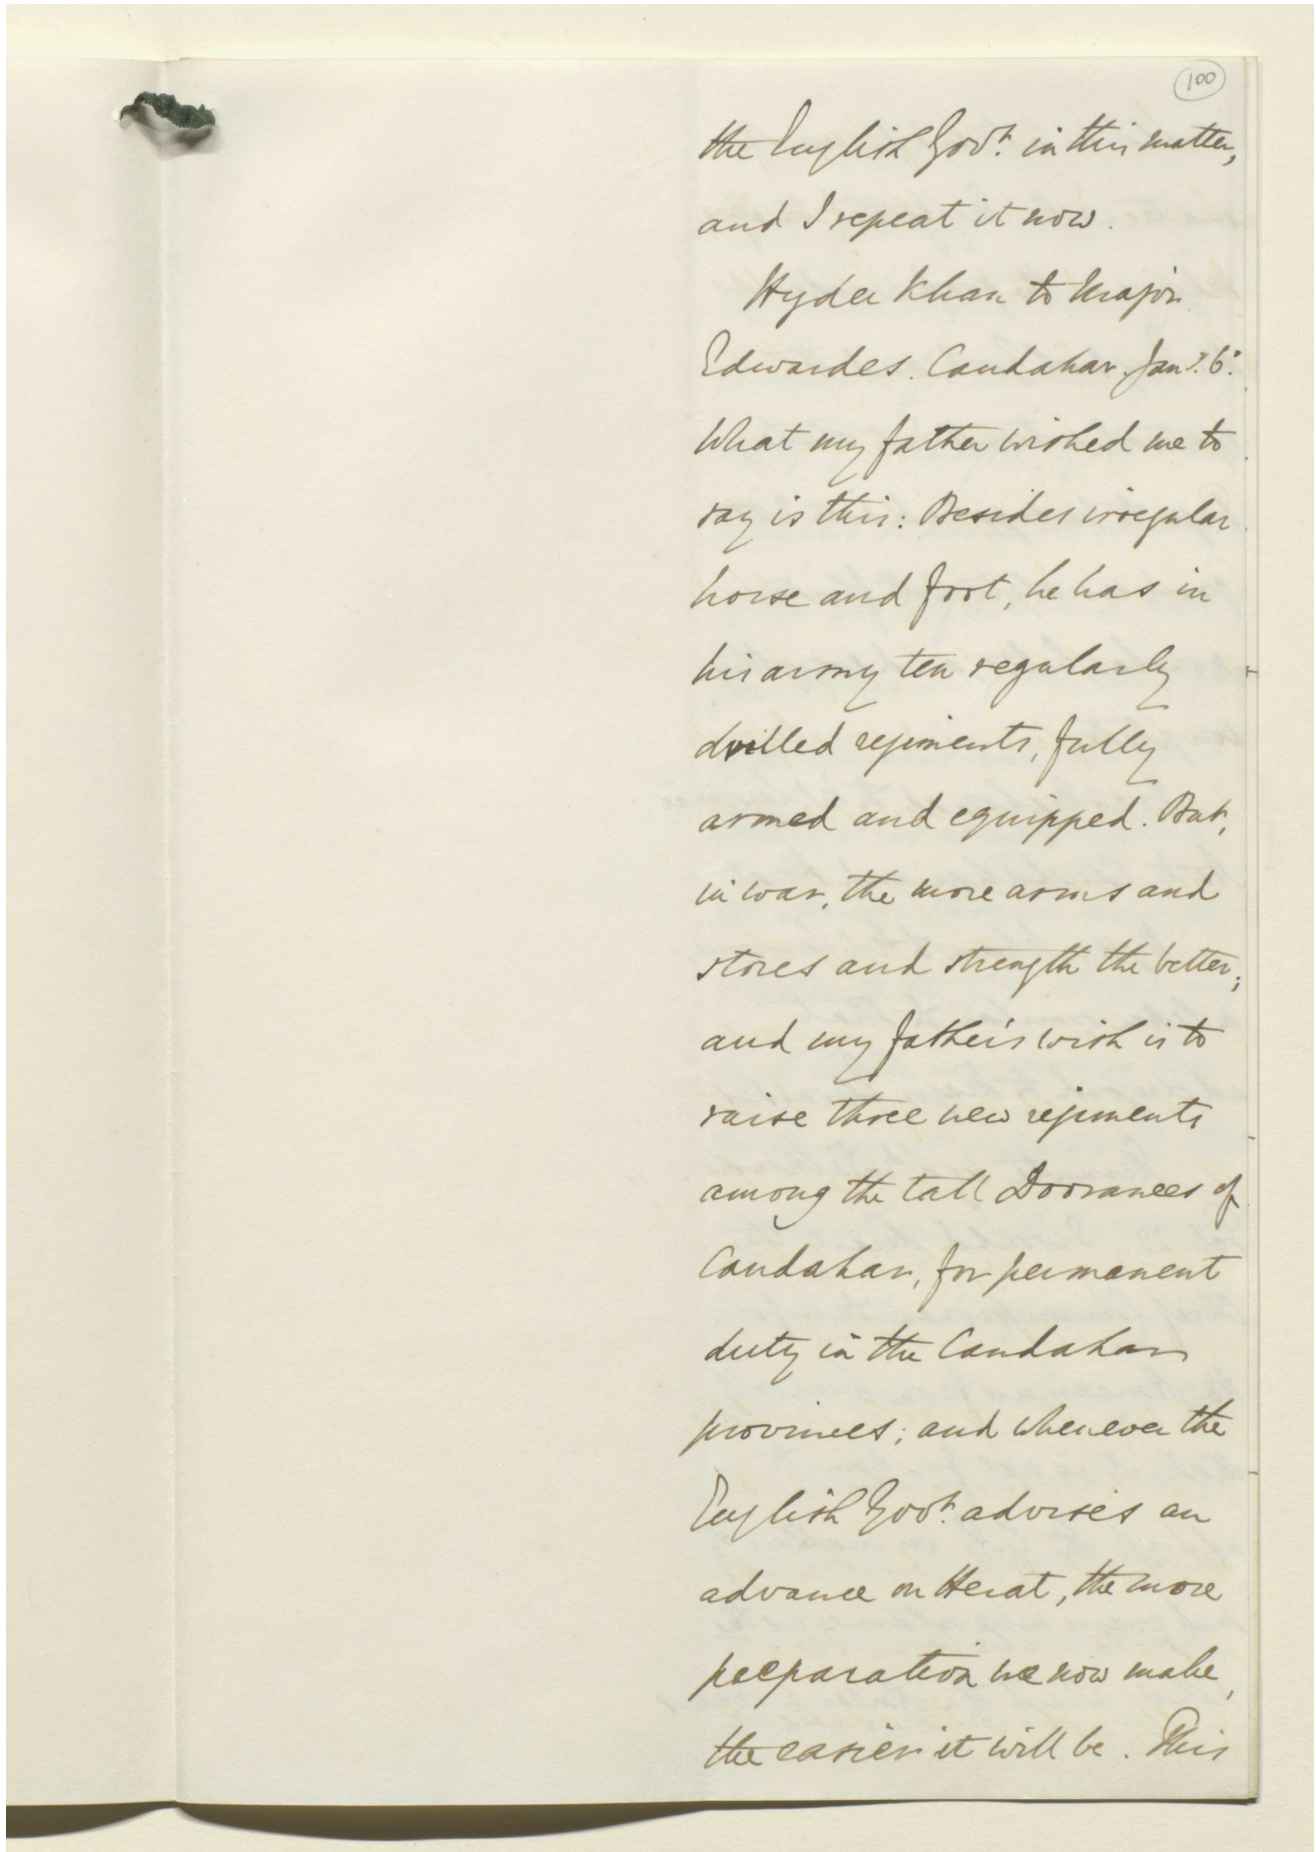 100
the English Govt. in this matter,
and I repeat it now.
Hyder Khan to Major
Edwardes. Candahar. Jany. 6.
What my father wished me to
say is this: Besides irregular
horse and foot, he has in
his army ten regularly
drilled regiments, fully
armed and equipped. But,
in war, the more arms and
stores and strength the better;
and my father's wish is to
raise three new regiments
among the tall Dooranees of
Candahar, for permanent
duty in the Candahar
provinces; and whenever the
English Govt. advises an
advance on Herat, the more
preparation we now make,
the easier it will be. This